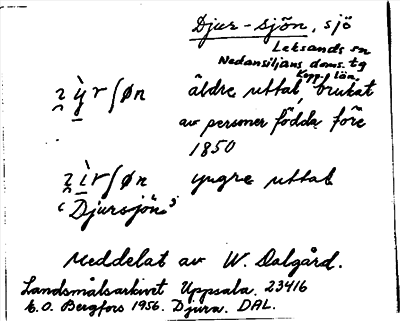 Djur-sjön, sjö
Leksands sn
Nedansiljans doms. tg
Kopp. län.
äldre uttal, brukat
av personer födda före
1850
yngre uttal
"Djursjön"
Meddelat av W. Dalgård.
Landsmålsarkivet Uppsala. 23416
E.O. Bergfors 1956. Djura. DAL.